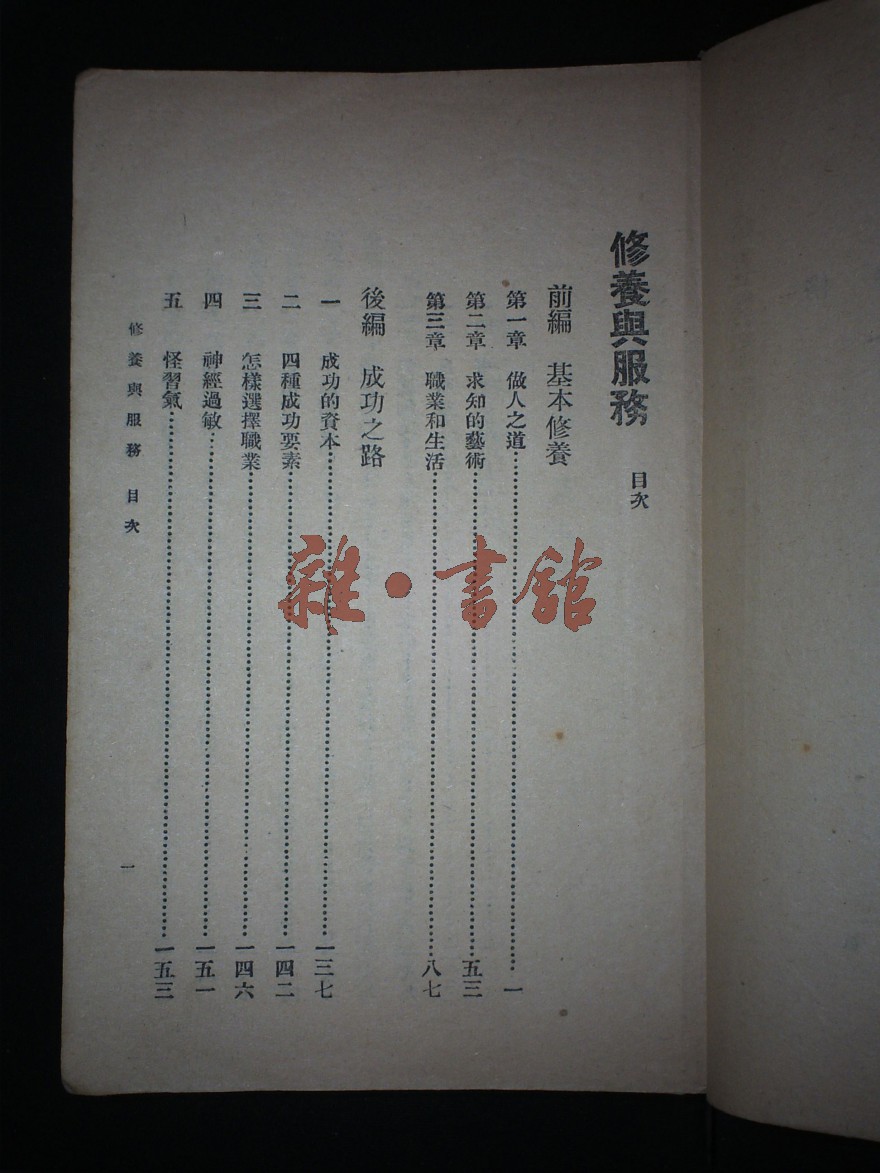 修養與服務 目次
前編 基本修養
第一章 做人之道……一
第二章 求知的藝術……五三
第三章 職業和生活……八七
後編 成功之路
一 成功的資本……一三七
二 四種成功要素……一四二
三 怎樣選擇職業……一四六
四 神經過敏……一五一
五 怪習氣……一五三
修養與服務 目次 一
雜·書館